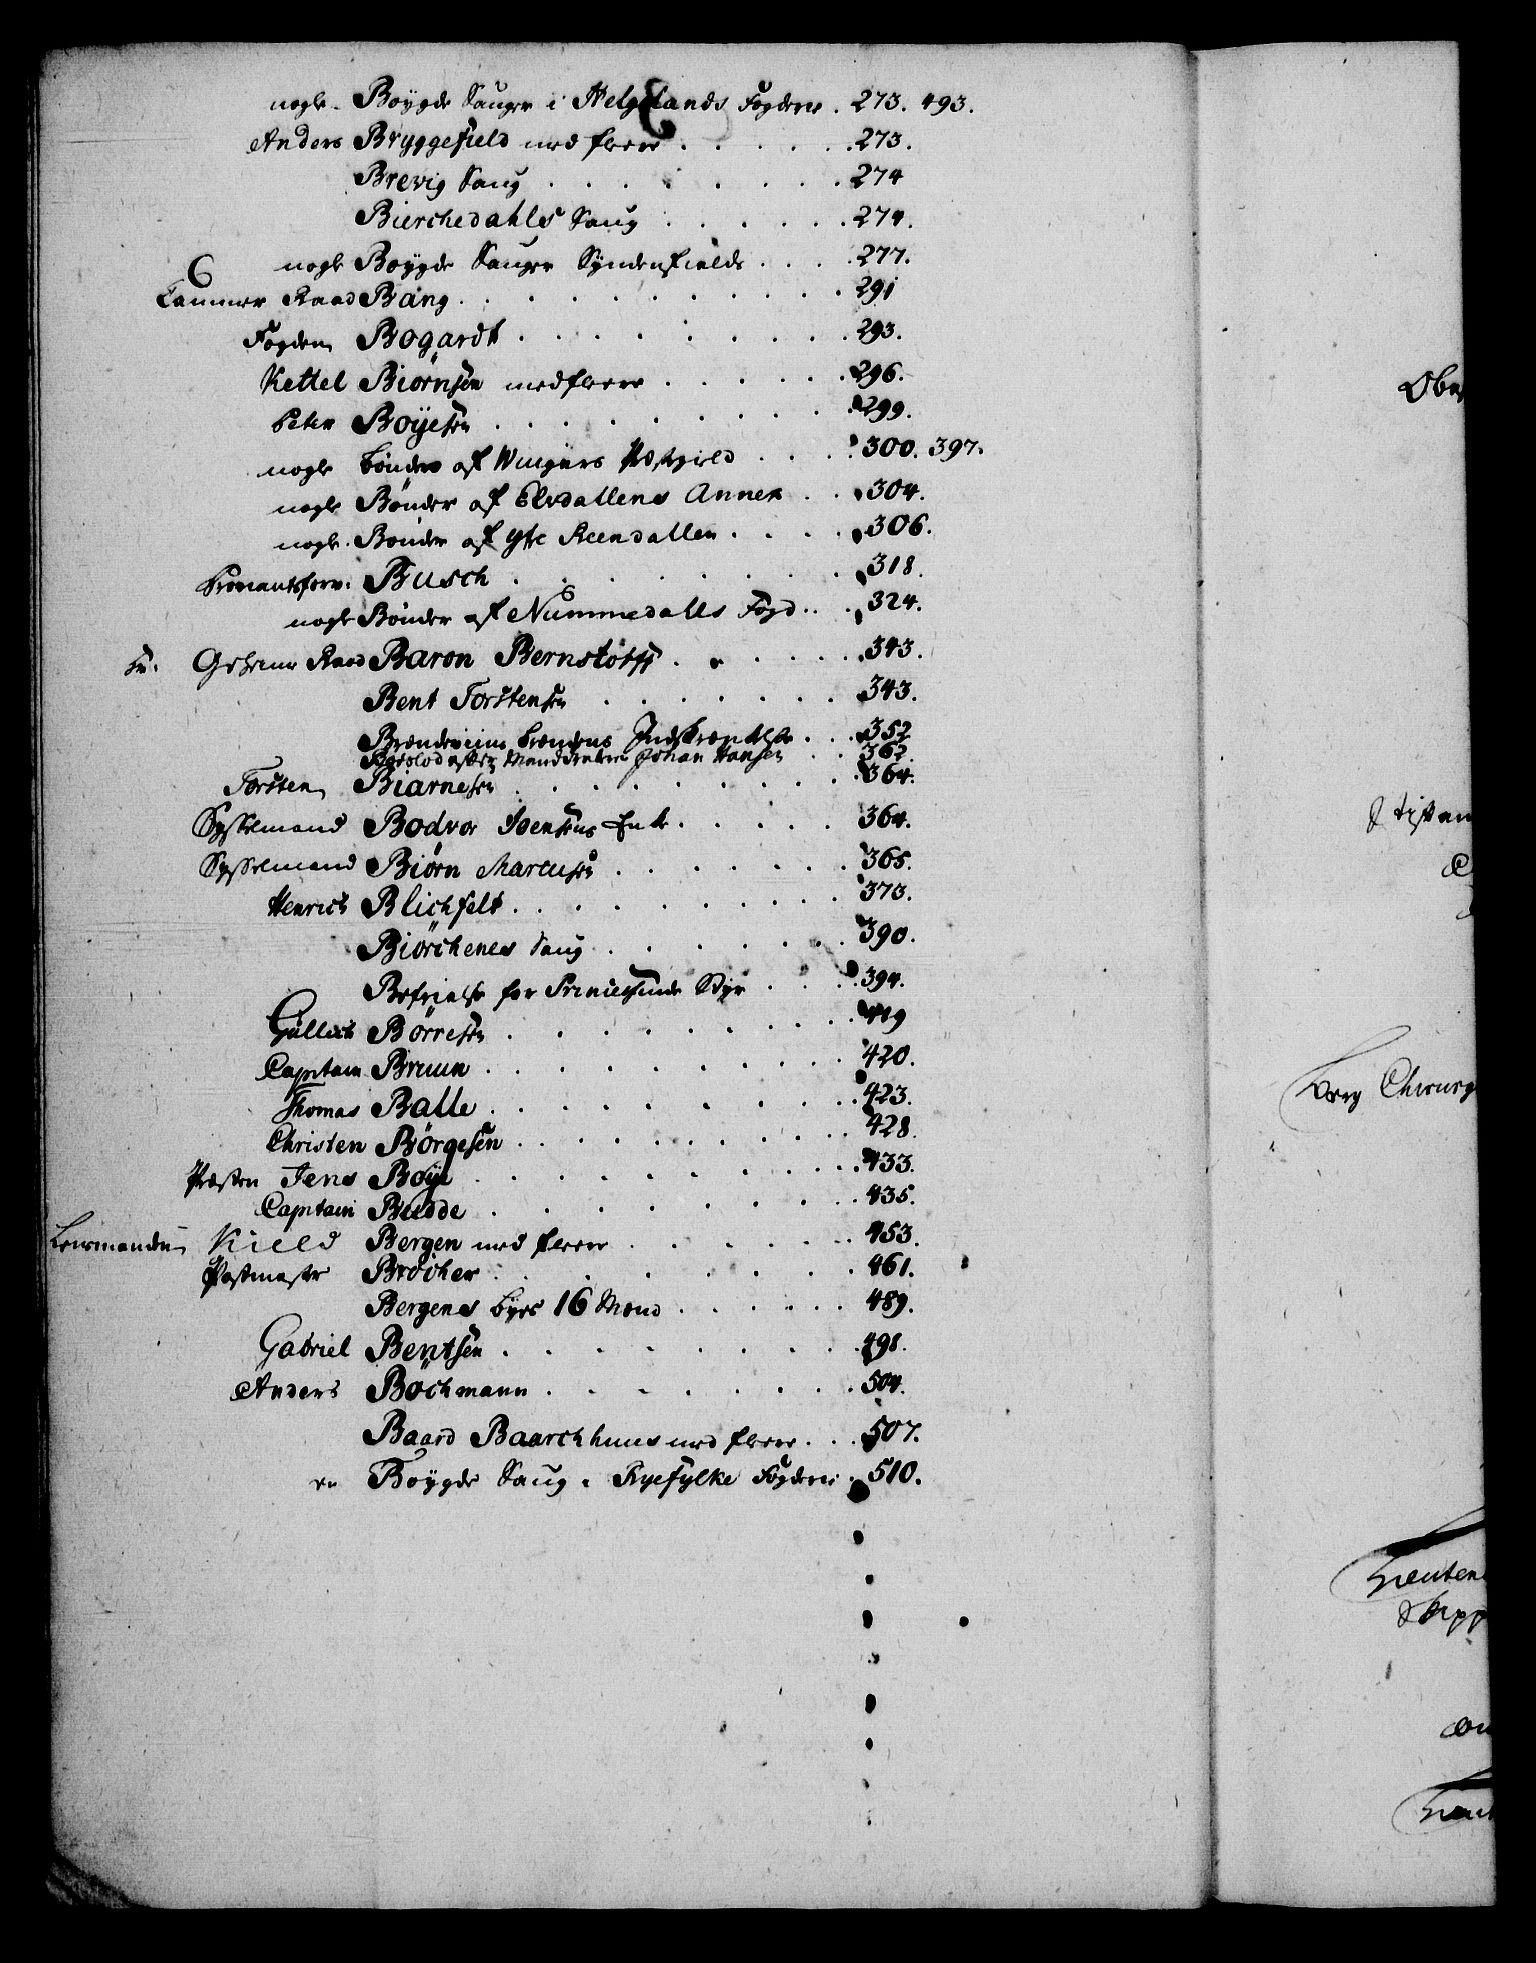 nogle Bøygde Sauger i Helgelands Fogderie . 273. 493.
Anders Bryggefield med flere . . . . . . 273.
Brevig Saug . . . . . . . . 274
Bierchedahls Saug . . . . . . 274.
nogle Bøygde Sauger Syndenfields . . . . 277.
Cammer Raad Bang . . . . . . . . . . 291
Fogden Bogardt . . . . . . . . . 293.
Kettel Biørnsen med flere . . . . . . 296.
Peter Boyesen . . . . . . . . . 299.
nogle Bønder af Wingers Præstegield . . . . 300. 397.
nogle Bønder af Elvdallens Annex . . . 304.
nogle Bønder af Ytre Reendallen . . . . 306.
Proviantsforv: Busch . . . . . . . . 318.
nogle Bønder af Nummedalls Fogd . . . 324.
Hr. Geheime Raad Baron Bernstorff . . . . . . 343.
Bent Torstensen . . . . . . . 343.
Brændeviins Brændens Indskrænkelse . . . 352
Manddraber Johan Hansen . . 362.
Torsten Biarnesen . . . . . . . . . 364.
Sysselmand Bodvar Enke . . . . . 364.
Sysselmand Biørn Marcusen . . . . . . . 365.
Henrich Blichfelt . . . . . . . . . . 373.
Biørchenes Saug . . . . . . . . 390.
Befrielse for Princessinde Styr . . . . 394.
Gullich Børresen . . . . . . . . . 419
Captain Bruun . . . . . . . . . . 420.
Thomas Balle . . . . . . . . . . 423.
Christen Børgesen . . . . . . . . . . 428.
Præsten Jens Boye . . . . . . . . . . 433.
Captain Budde . . . . . . . . . 435.
Lensmanden Kield Bergen med flere . . . . . . 453.
Postmester Brocher . . . . . . . . 461.
Bergens Byes 16 Mænd . . . . . . 489.
Gabriel Bentsen . . . . . . . . . 498.
Anders Bochmann . . . . . . . . 504.
Baard Baarchhuus med flere . . . 507.
en Bøygde Saug i Ryefylke Fogderie . 510.
Ober
Stiftam
Chirurg
Lieuten
Skipp
Lieut